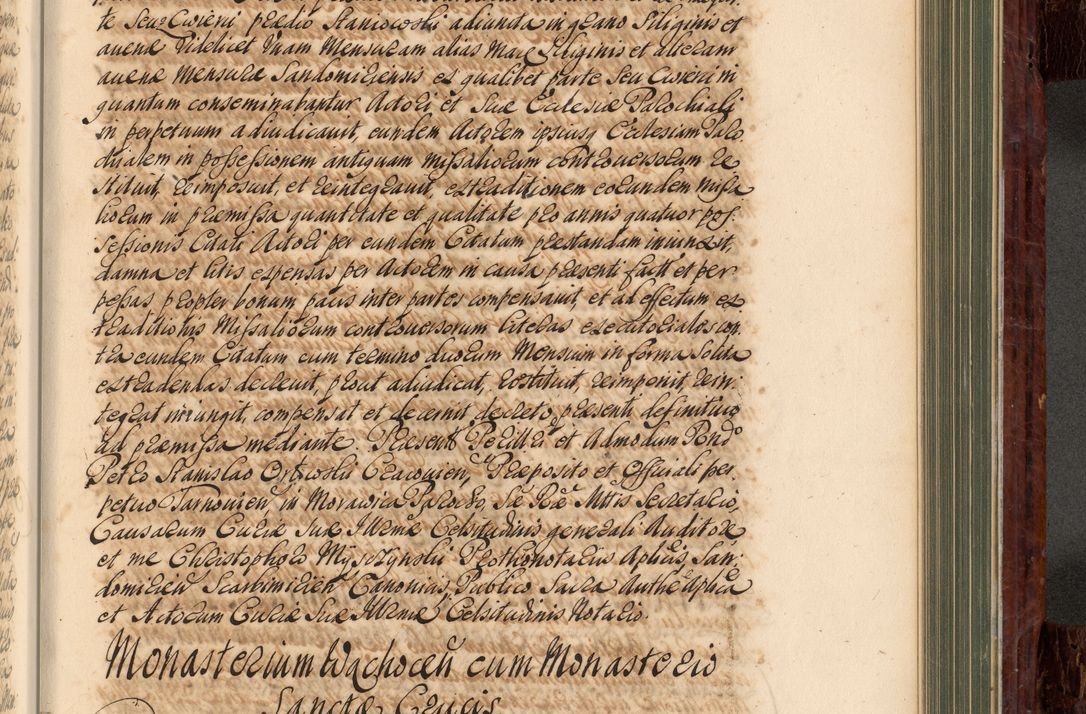 te Seu Cwierci prædio Staniowski adiuncta in grano Siliginis et
avenæ videlicet Unam Mensuram alias Miare Siliginis et alteram
avenæ Mensuræ Sandomiriensis ex qualibet parte Seu Cwierci in
quantum conseminabantur Actori et Suæ Ecclesiæ Parochiali
in perpetuum adiudicavit, eundem Actorem ipsiusq Ecclesiam Paro
chialem in possessionem antiquam missaliorum controversorum re
stituit, reimposuit, et reintegravit, extraditionem eorundem missa
liorum in præmissa quantitate et qualitate pro annis quatuor pos
sessionis Citati Actori per eundem Citatum præstandam iniunxit,
damna et litis expensas per Actorem in causa præsenti fact et per
pessas propter bonum pacis inter partes compensavit, et ad effectum ex
traditionis Missaliorum controversorum literas executoriales con
tra eundem Citatum cum termino duorum Mensium in forma Solita
extradendas decrevit, prout adiudicat, restituit, reimponit, rein
tegrat iniungit, compensat et decernit decreto præsenti definitivo
ad præmissa mediante. Præsent Perillri et Admodum Rendo
Petro Stanislao Crakovien, Præposito et Officiali per
petuo Tarnovien, in Morawica Parocho, Sæ Ræ Mttis Secretario,
Causarum Curiæ Suæ Illmæ Celsitudinis generali Auditore
et me Christophoro Protonotario Aplico, San
domirien Scarbimirien Canonico, Publico Sacra Authe Aplica
et Actorum Curiæ Suæ Illmæ Celsitudinis Notario.
Monasterium Wąchocen cum Monasterio
Sanctæ Crucis